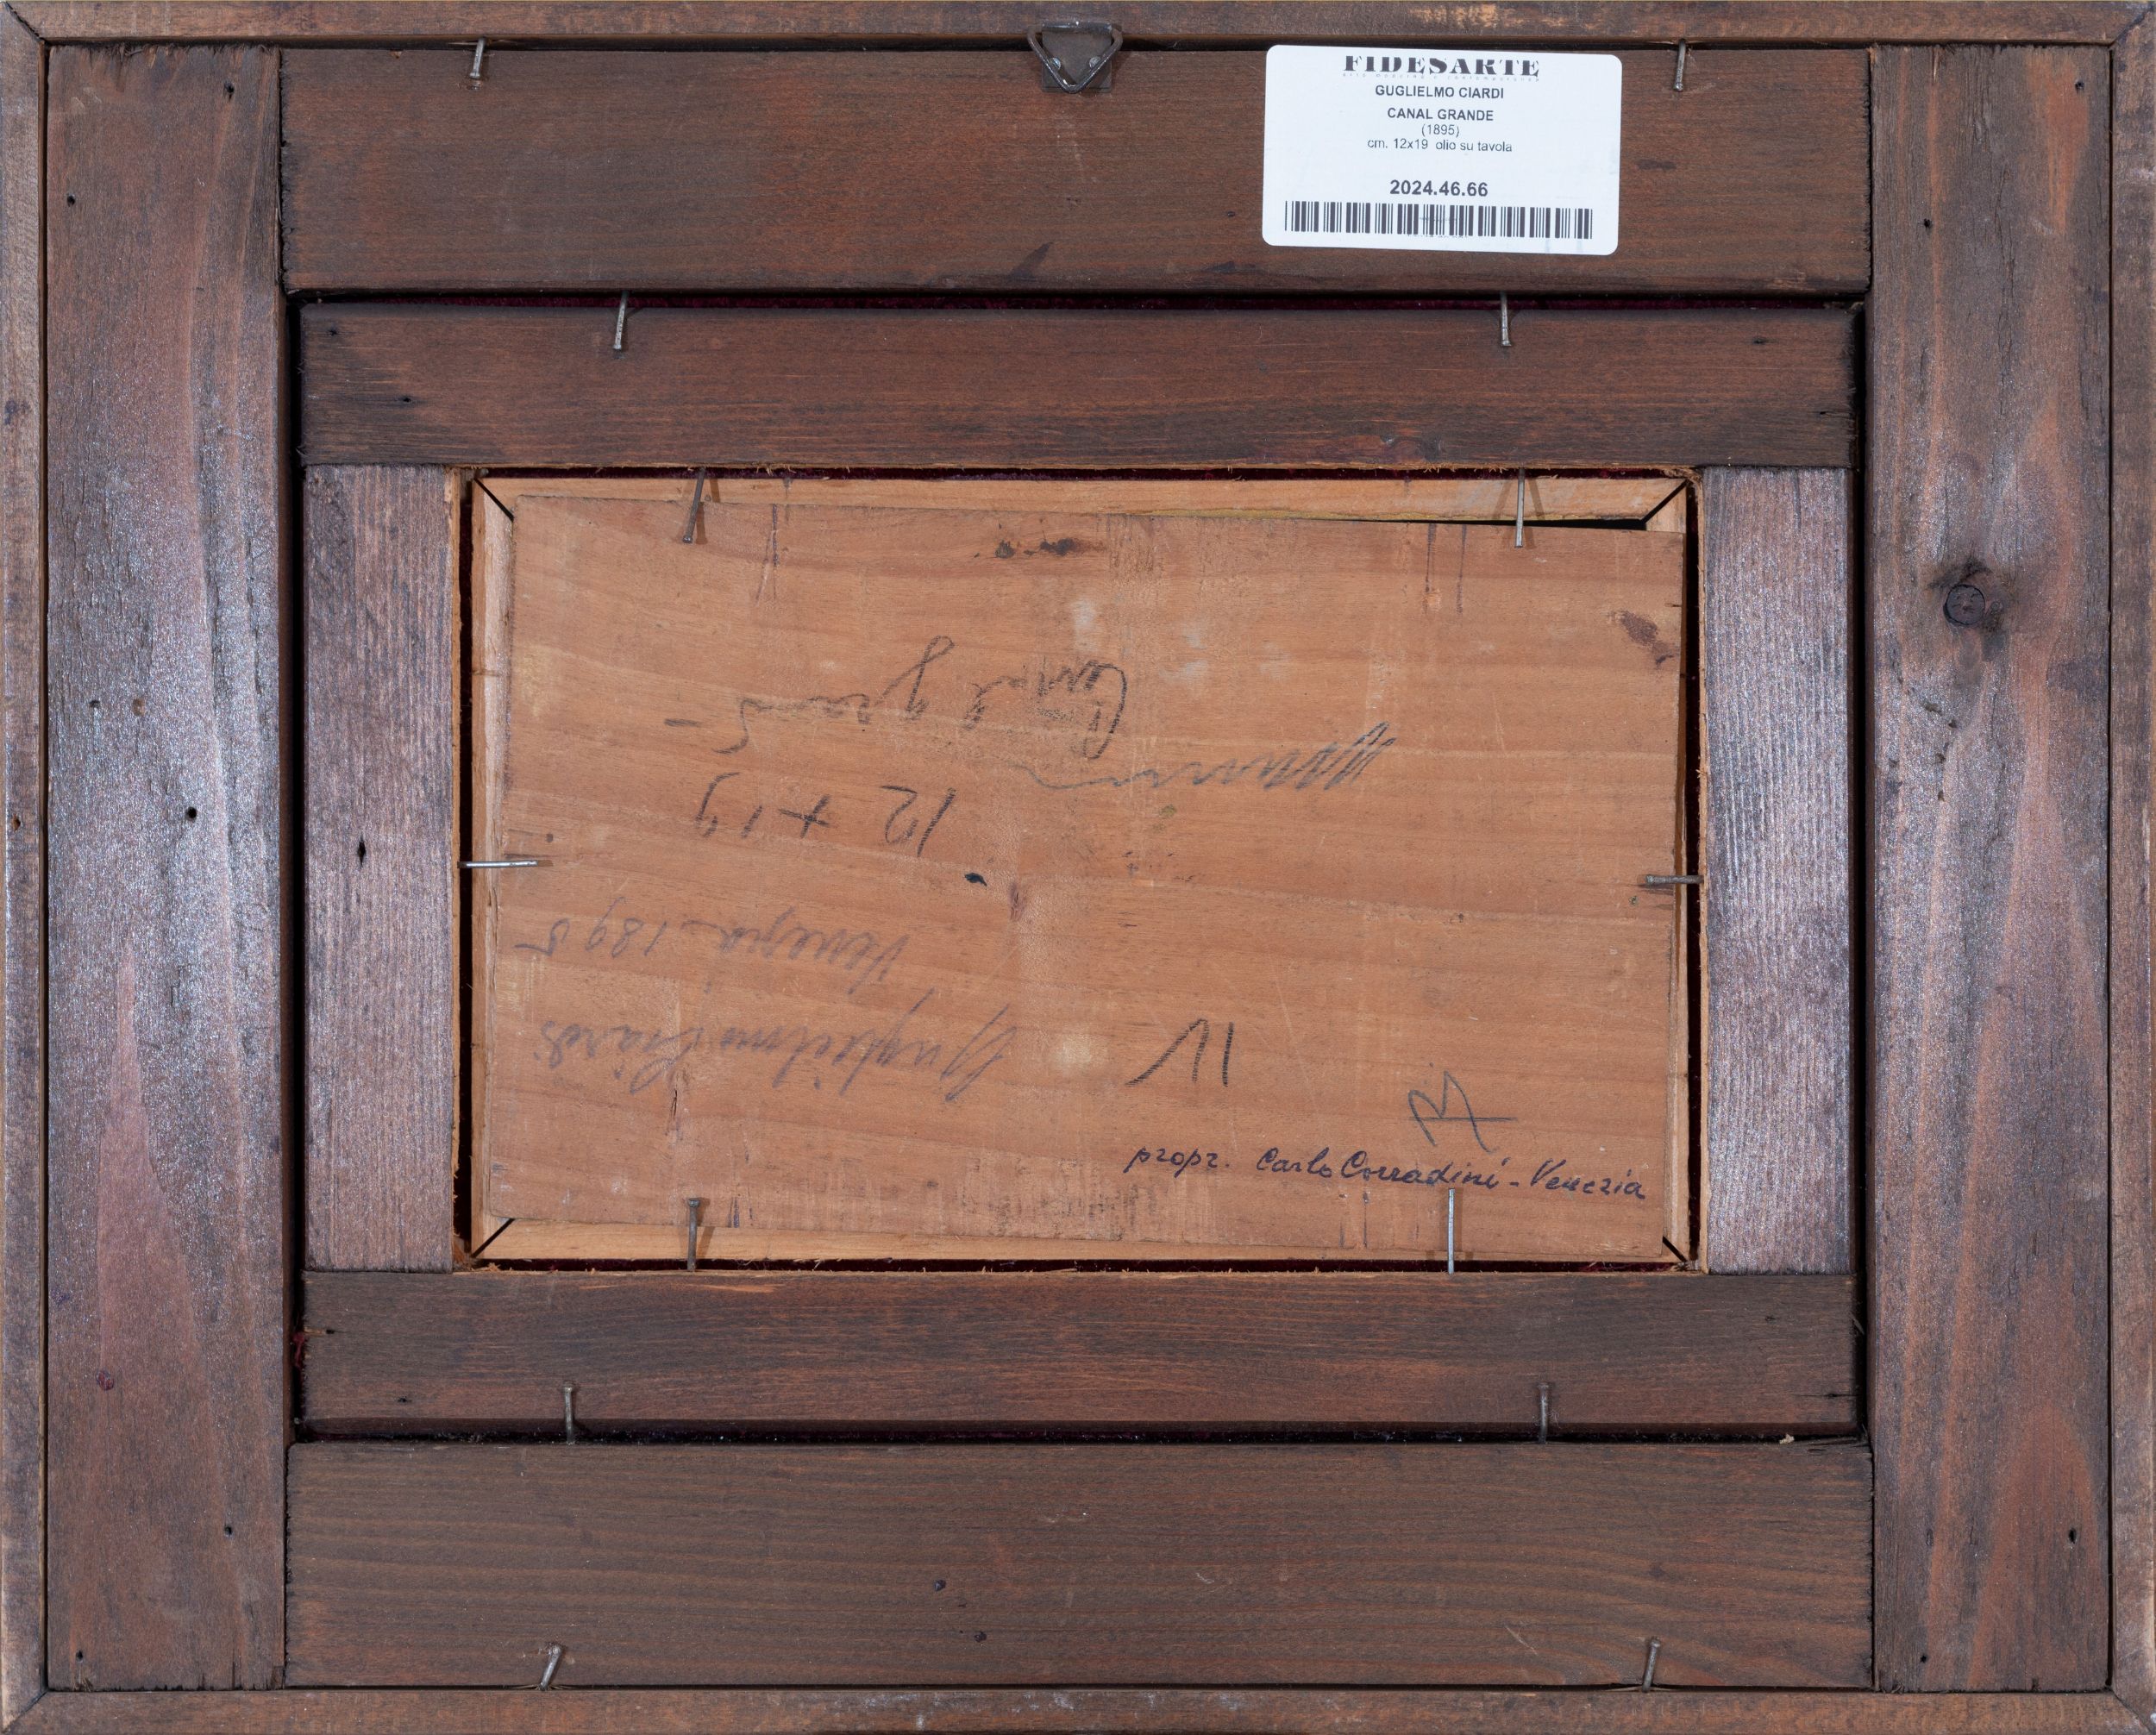 FIDESARTE
arte moderna e contemporanea
GUGLIELMO CIARDI
CANAL GRANDE
(1895)
cm. 12x19 olio su tavola
2024.46.66
Guglielmo Ciardi
Venezia 1895
12 + 19
Canal grand
11
propr. Carlo Corradini - Venezia